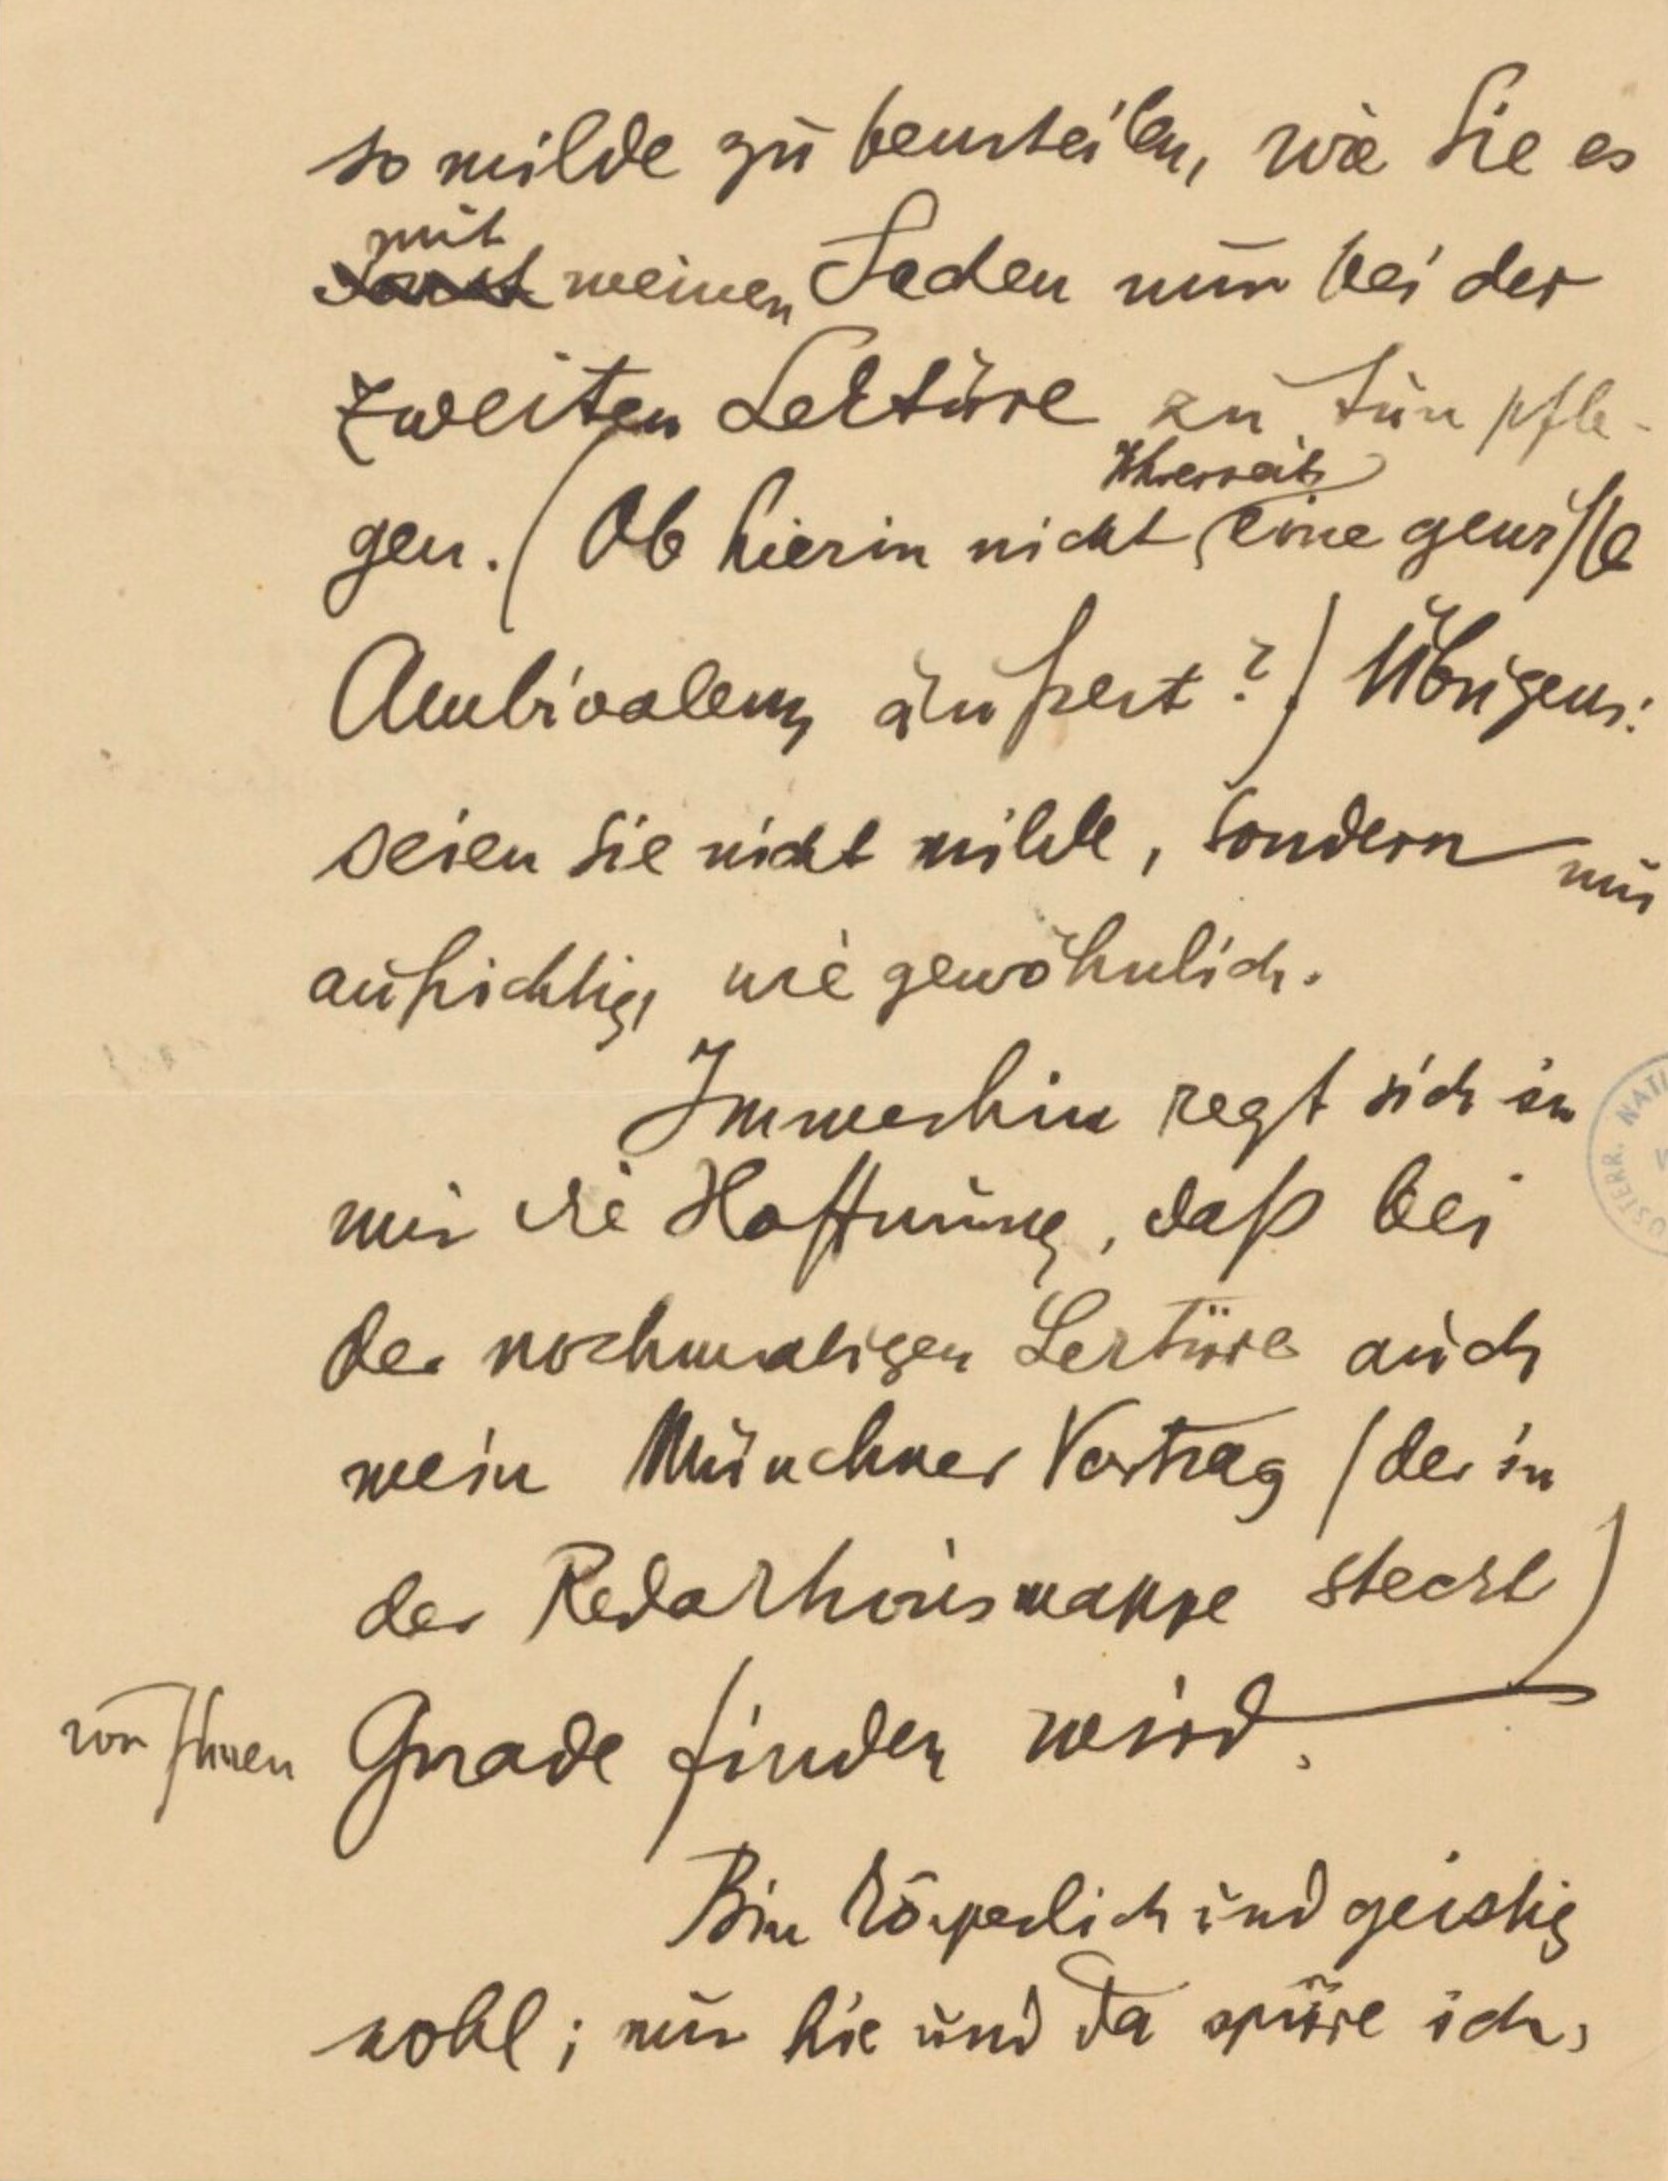 so milde zu beurteilen, wie Sie es
mit
sonst meinen Sachen nur bei der
zweiten Lektüre zu tun pfle-
gen. (Ob hierin nicht eine gewisse
Ihrerseits
Ambivalenz äußert?) Übrigens:
seien Sie nicht milde, sondern nur
aufrichtig, wie gewöhnlich.
Immerhin regt sich in
mir die Hoffnung, daß bei
der nochmaligen Lektüre auch
mein Münchner Vortrag (der in
der Redaktionsmappe steckt)
von Ihnen Gnade finden wird.
Bin körperlich und geistig
wohl; nur hie und da spüre ich,
ÖSTERR. NATI